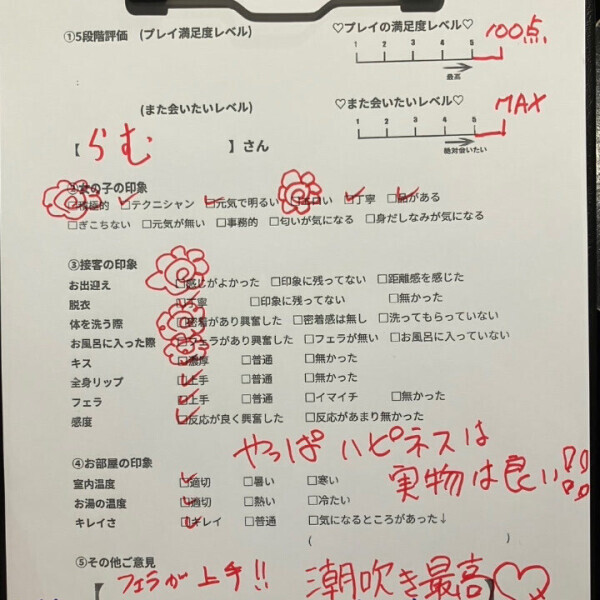 ①5段階評価 (プレイ満足度レベル) ♡プレイの満足度レベル♡ 100点
1 2 3 4 5
最高
(また会いたいレベル) ♡また会いたいレベル♡ MAX
1 2 3 4 5
【 らむ 】さん 絶対会いたい
②女の子の印象
□積極的 □テクニシャン □元気で明るい □エロい □丁寧 □品がある
□ぎこちない □元気が無い □事務的 □匂いが気になる □身だしなみが気になる
③接客の印象
お出迎え □感じがよかった □印象に残ってない □距離感を感じた
脱衣 □丁寧 □印象に残ってない □無かった
体を洗う際 □密着があり興奮した □密着感は無し □洗ってもらっていない
お風呂に入った際 □フェラがあり興奮した □フェラが無い □お風呂に入っていない
キス □濃厚 □普通 □無かった
全身リップ □上手 □普通 □無かった
フェラ □上手 □普通 □イマイチ □無かった
感度 □反応が良く興奮した □反応があまり無かった
やっぱハピネスは
実物は良い!!
④お部屋の印象
室内温度 □適切 □暑い □寒い
お湯の温度 □適切 □熱い □冷たい
キレイさ □キレイ □普通 □気になるところがあった↓
( )
⑤その他ご意見
【 フェラが上手!! 潮吹き最高♡ 】